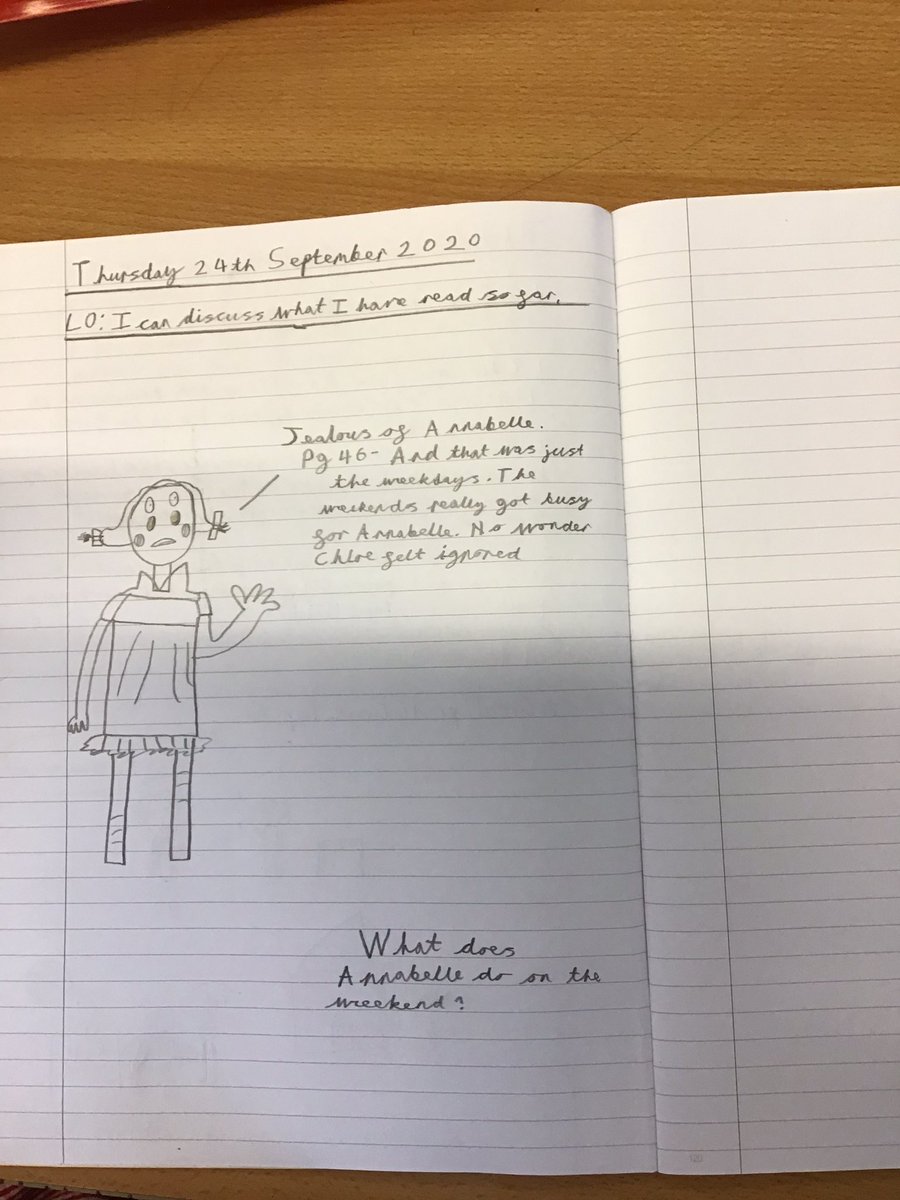 Thursday 24th September 2020
LO: I can discuss what I have read so far.
Jealous of Annabelle.
Pg 46- And that was just
the weekdays. The
weekends really got busy
for Annabelle. No wonder
Chloe felt ignored
What does
Annabelle do on the
weekend?
120